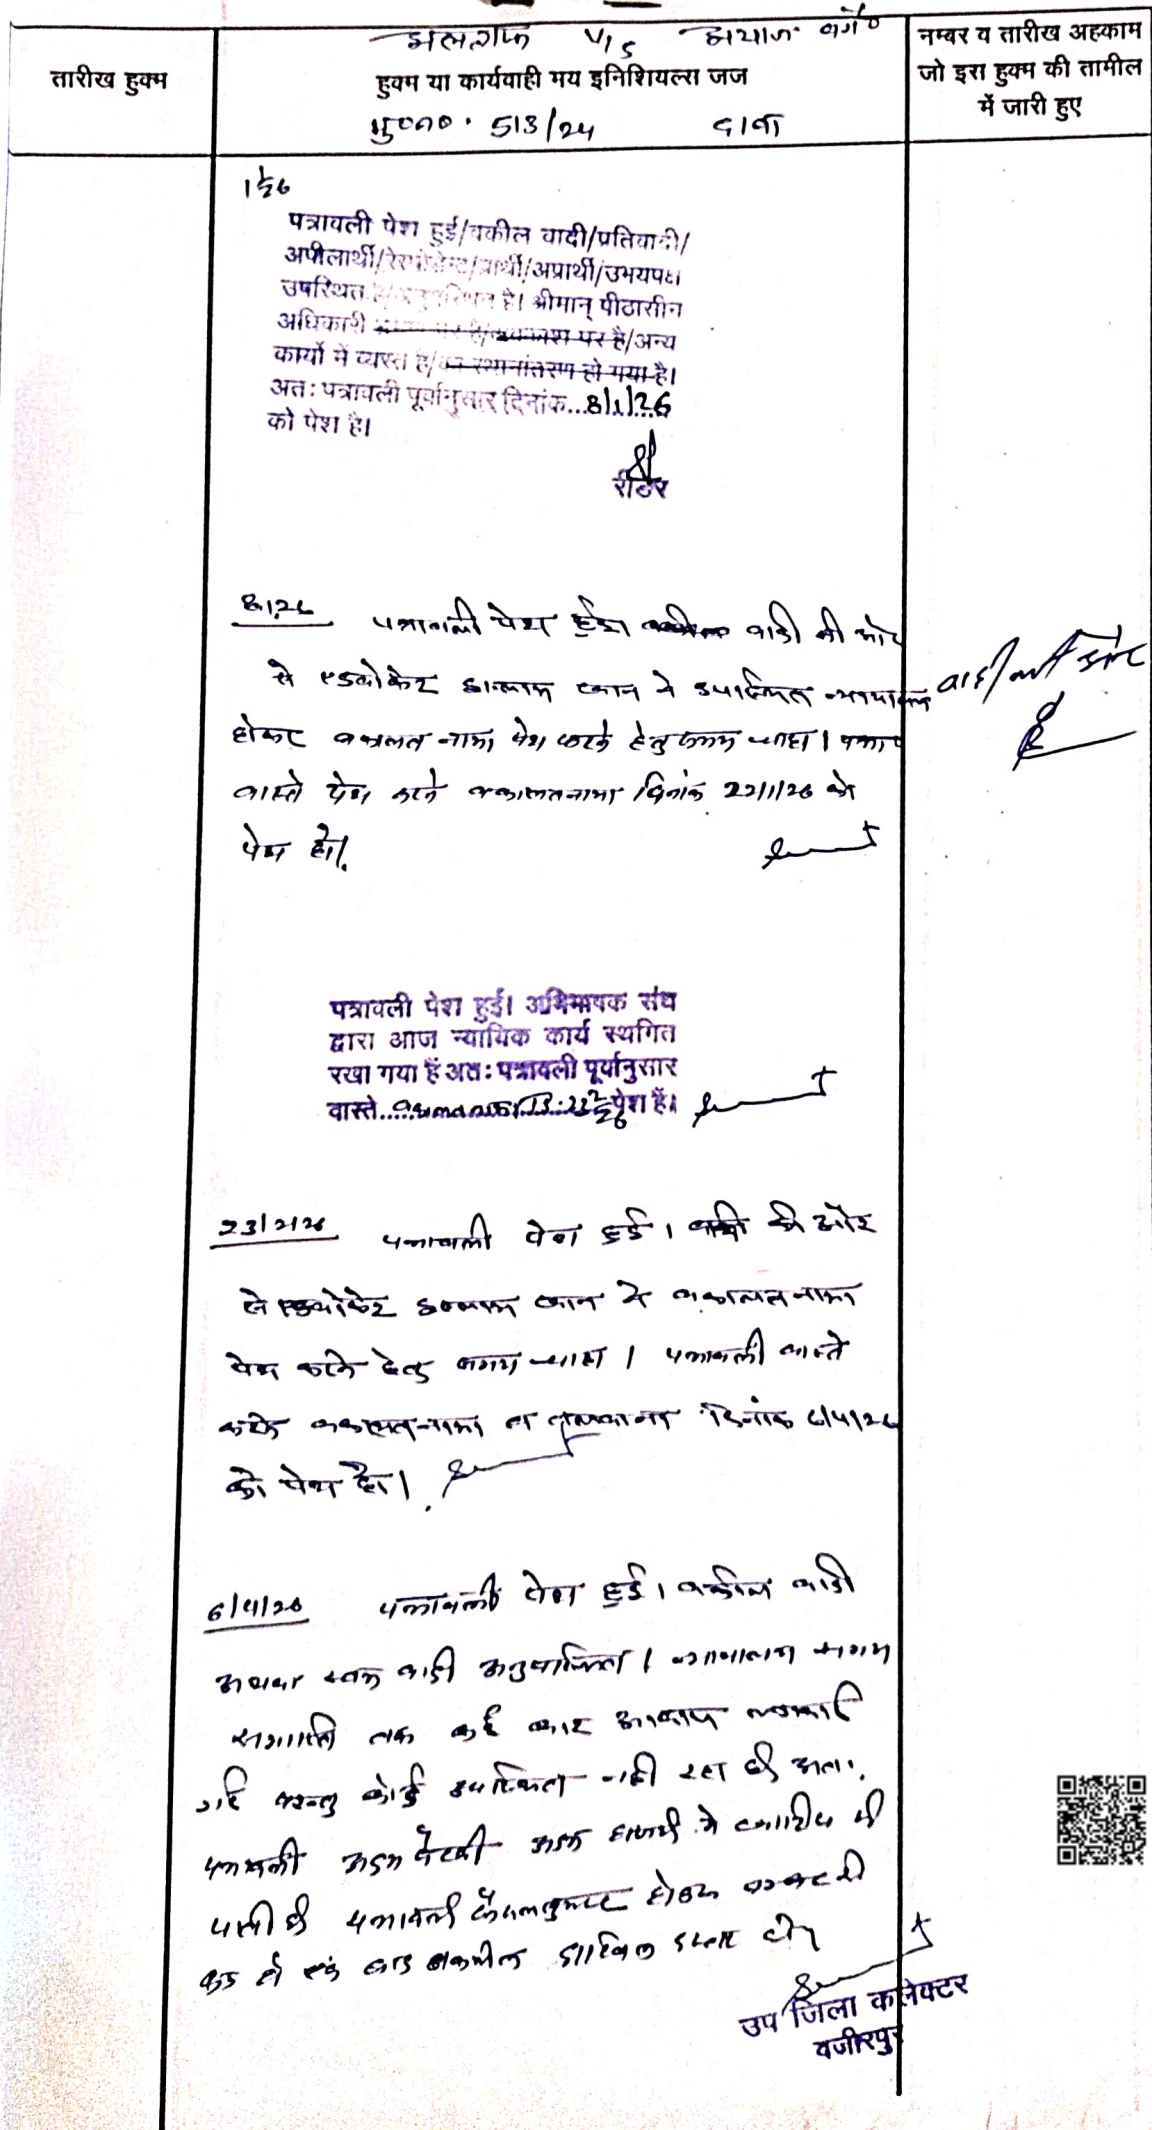 तारीख हुक्म
V/S
हुक्म या कार्यवाही मय इनिशियल्स जज
मु०न०. 513/24 दावा
नम्बर व तारीख अहकाम
जो इस हुक्म की तामील
में जारी हुए
पत्रावली पेश हुई/वकील वादी/प्रतिवादी/
अपीलार्थी/रेस्पोडेन्ट/प्रार्थी/अप्रार्थी/उभयपक्ष
उपस्थित है/अनुपस्थित है। श्रीमान् पीठासीन
अधिकारी अवकाश पर है/अन्य
कार्यो में व्यस्त है/का स्थानांतरण हो गया है।
अतः पत्रावली पूर्वानुसार दिनांक...8/1/26
को पेश है।
रीडर
8/1/26 पत्रावली पेश हुई। वादी की ओर
से एडवोकेट खान ने उपस्थित न्यायालय
होकर वकालत नामा पेश करने हेतु समय चाहा।
वास्ते पेश करने वकालतनामा दिनांक 22/1/26 को
पेश हो।
पत्रावली पेश हुई। अभिभाषक संघ
द्वारा आज न्यायिक कार्य स्थगित
रखा गया हैं अतः पत्रावली पूर्वानुसार
वास्ते पेश हैं।
23/2/26 पत्रावली पेश हुई। वादी की ओर
से एडवोकेट खान ने वकालत नामा
पेश करने हेतु समय चाहा। पत्रावली वास्ते
वकालतनामा व तलवाना दिनांक 6/4/26
को पेश हो।
6/4/26 पत्रावली पेश हुई। वकील वादी
अथवा स्वयं वादी अनुपस्थित। न्यायालय समय
समाप्ति तक कई बार आवाज लगवाई
गई परन्तु कोई उपस्थित नही अतः
पत्रावली अदम पैरवी अदम हाजरी मे खारिज की
पत्रावली फैसलशुमार होकर नम्बर से
कम हो बाद तकमील दाखिल दफ्तर हो।
उप जिला कलेक्टर
वजीरपुर